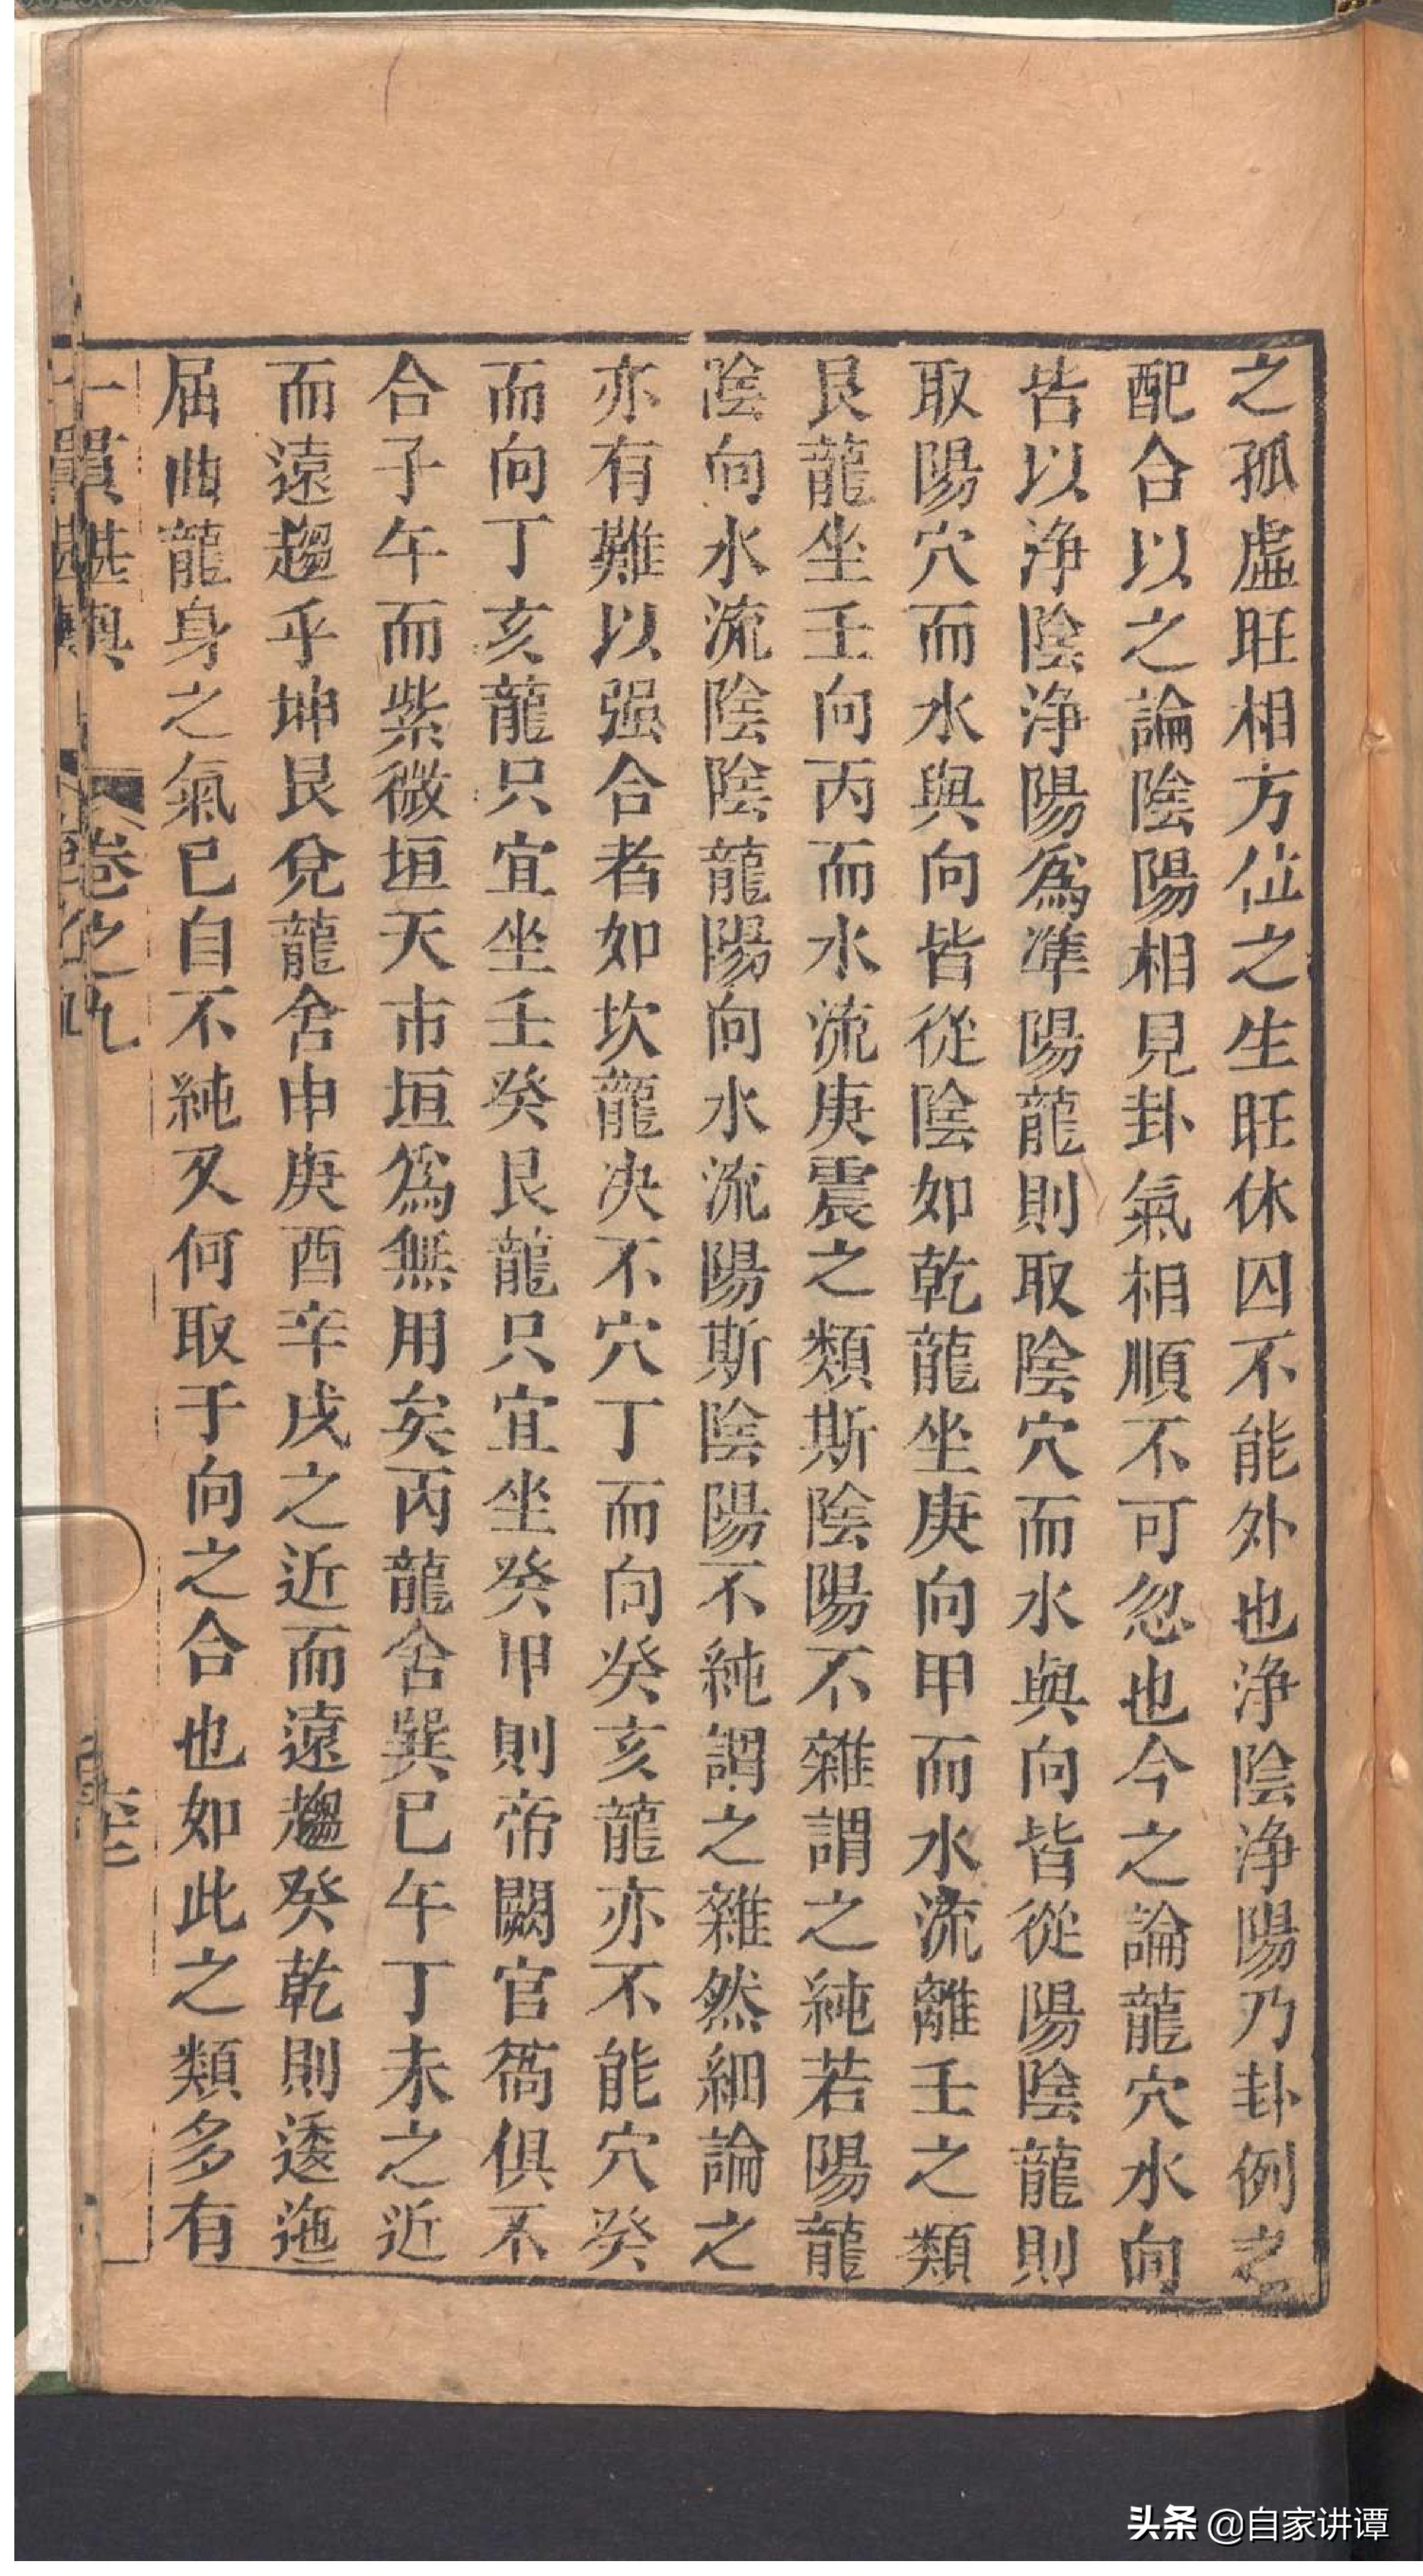 之孤虛旺相方位之生旺休囚不能外也淨陰淨陽乃卦例之
配合以之論陰陽相見卦氣相順不可忽也今之論龍穴水向
皆以淨陰淨陽爲準陽龍則取陰穴而水與向皆從陽陰龍則
取陽穴而水與向皆從陰如乾龍坐庚向甲而水流離壬之類
艮龍坐壬向丙而水流庚震之類斯陰陽不雜謂之純若陽龍
陰向水流陰陰龍陽向水流陽斯陰陽不純謂之雜然細論之
亦有難以强合者如坎龍决不穴丁而向癸亥龍亦不能穴癸
而向丁亥龍只宜坐壬癸艮龍只宜坐癸甲則帝闕官衙俱不
合子午而紫微垣天市垣爲無用矣丙龍舍巽巳午丁未之近
而遠趨乎坤艮兌龍舍申庚酉辛戌之近而遠趨癸乾則逶迤
屈曲龍身之氣已自不純又何取于向之合也如此之類多有
一貫堪輿
卷之九
头条 @自家讲谭